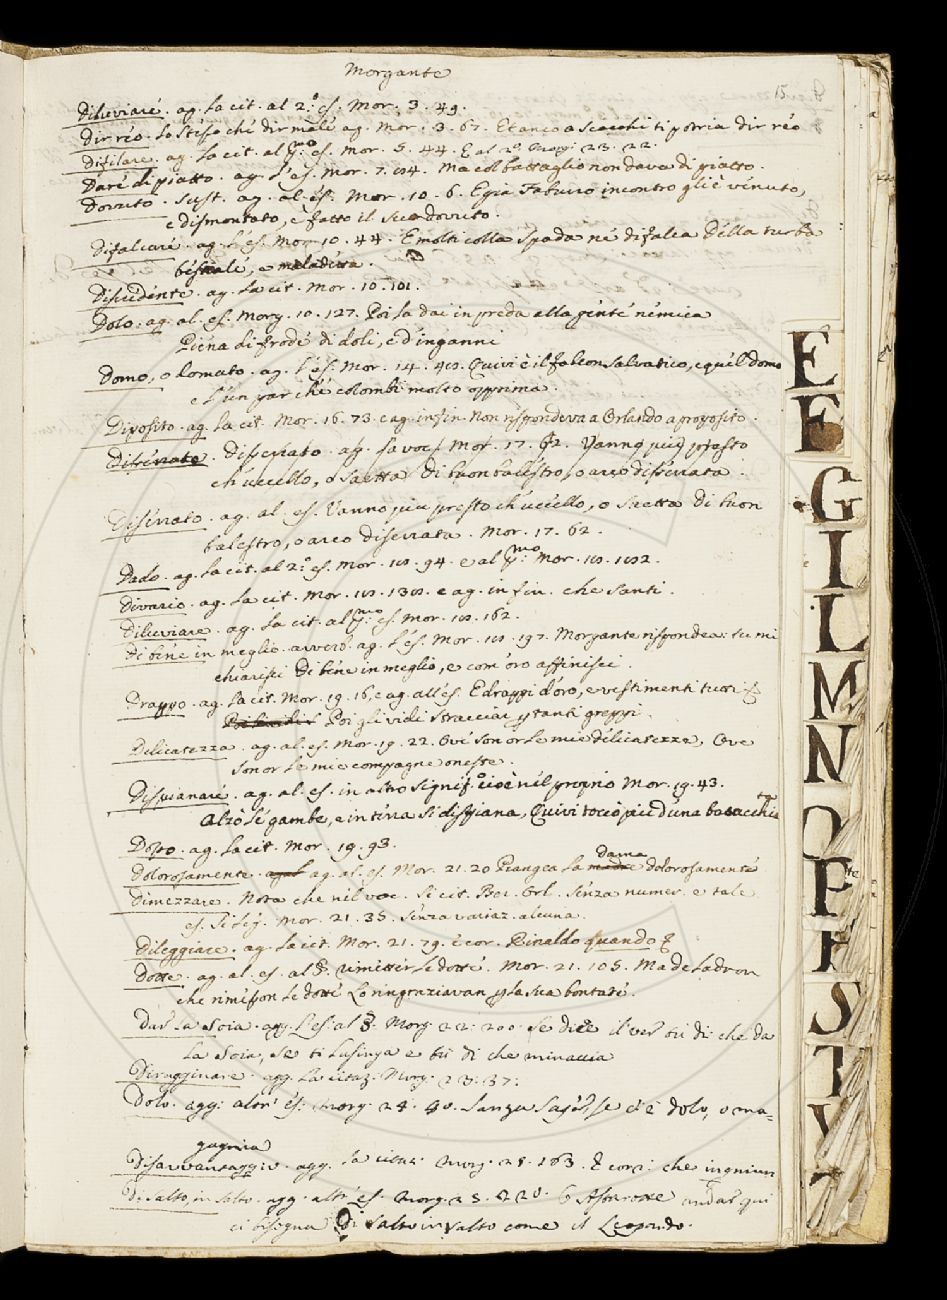 Morgante
15
Diluviare. ag. la cit. al 2.º es. Mor. 3. 49.
Dir reo. lo stesso che dir male ag. Mor. 3. 67. Et anco a scacchi ti potria dir reo
Difilare. ag. la cit. al pmo es. Mor. 5. 44. E al 2º Morg. 23. 22.
Dare di piatto. ag. l'es. Mor. 7. Ma col battaglio non dava di piatto.
Dovuto. sust. ag. al es. Mor. 10. 6. E già Faburro incontro gli è venuto,
e dismontato, e fatto il suo dovuto.
Difalcare. ag. l'es. Mor. 10. 44. E molti colla spada ne difalca Della turba
bestiale, e maladetta.
Discedente. ag. la cit. Mor. 10. 101.
Dolo. ag. al. es. Morg. 10. 127. Poi la dai in preda alla gente nemica
Piena di frode di doli, e d'inganni
Domo, o domato. ag. l'es. Mor. 14. Quivi è il falcon salvatico, e quel domo
e l'un par che colombi molto opprima.
Diposito. ag. la cit. Mor. 16. 73. e ag. in fin. Non rispondeva a Orlando a proposito.
Diserrato. Diserrato. ag. la voce Mor. 17. 62. Vanno più presto
ch'uccello, o saetta Di buon balestro, o arco diserrata.
Diserrato. ag. al. es. Vanno più presto ch'uccello, o saetta di buon
balestro, o arco diserrata. Mor. 17. 62.
Dado. ag. la cit. al 2.º es. Mor. 18. 94. e al pmo. Mor. 18.
Divario. ag. la cit. Mor. 18. e ag. in fin. che santi.
Diluviare. ag. la cit. al pmo es. Mor. 18. 162.
Di bene in meglio. avverb. ag. l'es. Mor. 18. 197. Morgante rispondea: tu mi
chiarisci Di bene in meglio, e com'oro affinisci.
Drappo. ag. la cit. Mor. 19. 16, e ag. all'es. E drappi d'oro, e vestimenti tutti
Poi gli vidi stracciar p tanti greppi.
Delicatezza. ag. al. es. Mor. 19. 22. Ove son or le mie delicatezze, Ove
son or le mie compagne oneste.
Dispianare. ag. al. es. in altro signif. cioè nel proprio Mor. 19. 43.
Alzò le gambe, e in terra si dispiana, Quivi toccò più d'una batacchia
ta
Dopo. ag. la cit. Mor. 19. 93.
dama
Dolorosamente. ag. al. es. Mor. 21. 20 Piangea la dolorosamente
Dimezzare. Nota che nel voc. si cit. Ber. Orl. senza numer. e tale
es. si leg. Mor. 21. 35. senza variaz. alcuna.
Dileggiare. ag. la cit. Mor. 21. 79. e cor. Rinaldo quando
Dotte. ag. al. es. al §. rimetter le dotte. Mor. 21. 105. Ma de ladron
che rimesson le dotte Lo ringraziavan p la sua bontate.
Dar la soia. agg. l'es. al §. Morg: 22: 200: se dice il ver tu di: che da
la soia, se ti lusinga e tu di che minaccia
Diruggin­are. agg. la citaz. Morg: 23: 37:
Dolo. agg: altr' es. Morg: 24. 90. sanza s'e' c'è dolo, o ma-
gagnia
Disavvantaggio. agg. la citaz. Morg: 25. 163. E corr: che
Di salto, in salto. agg. altr' es. Morg. 25. 220: O Astarotte andar qui
ci bisogna Di salto in salto come il Leopardo.
E
F
G
I
L
M
N
O
P
R
S
T
V
Z